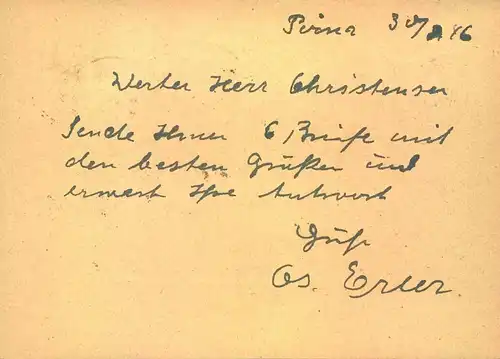 Pirna 30/8 46
Werter Herr Christensen
Sende Ihnen 6 Briefe mit
den besten Grüßen und
erwart Ihre Antwort
Gruß
Os. Erler